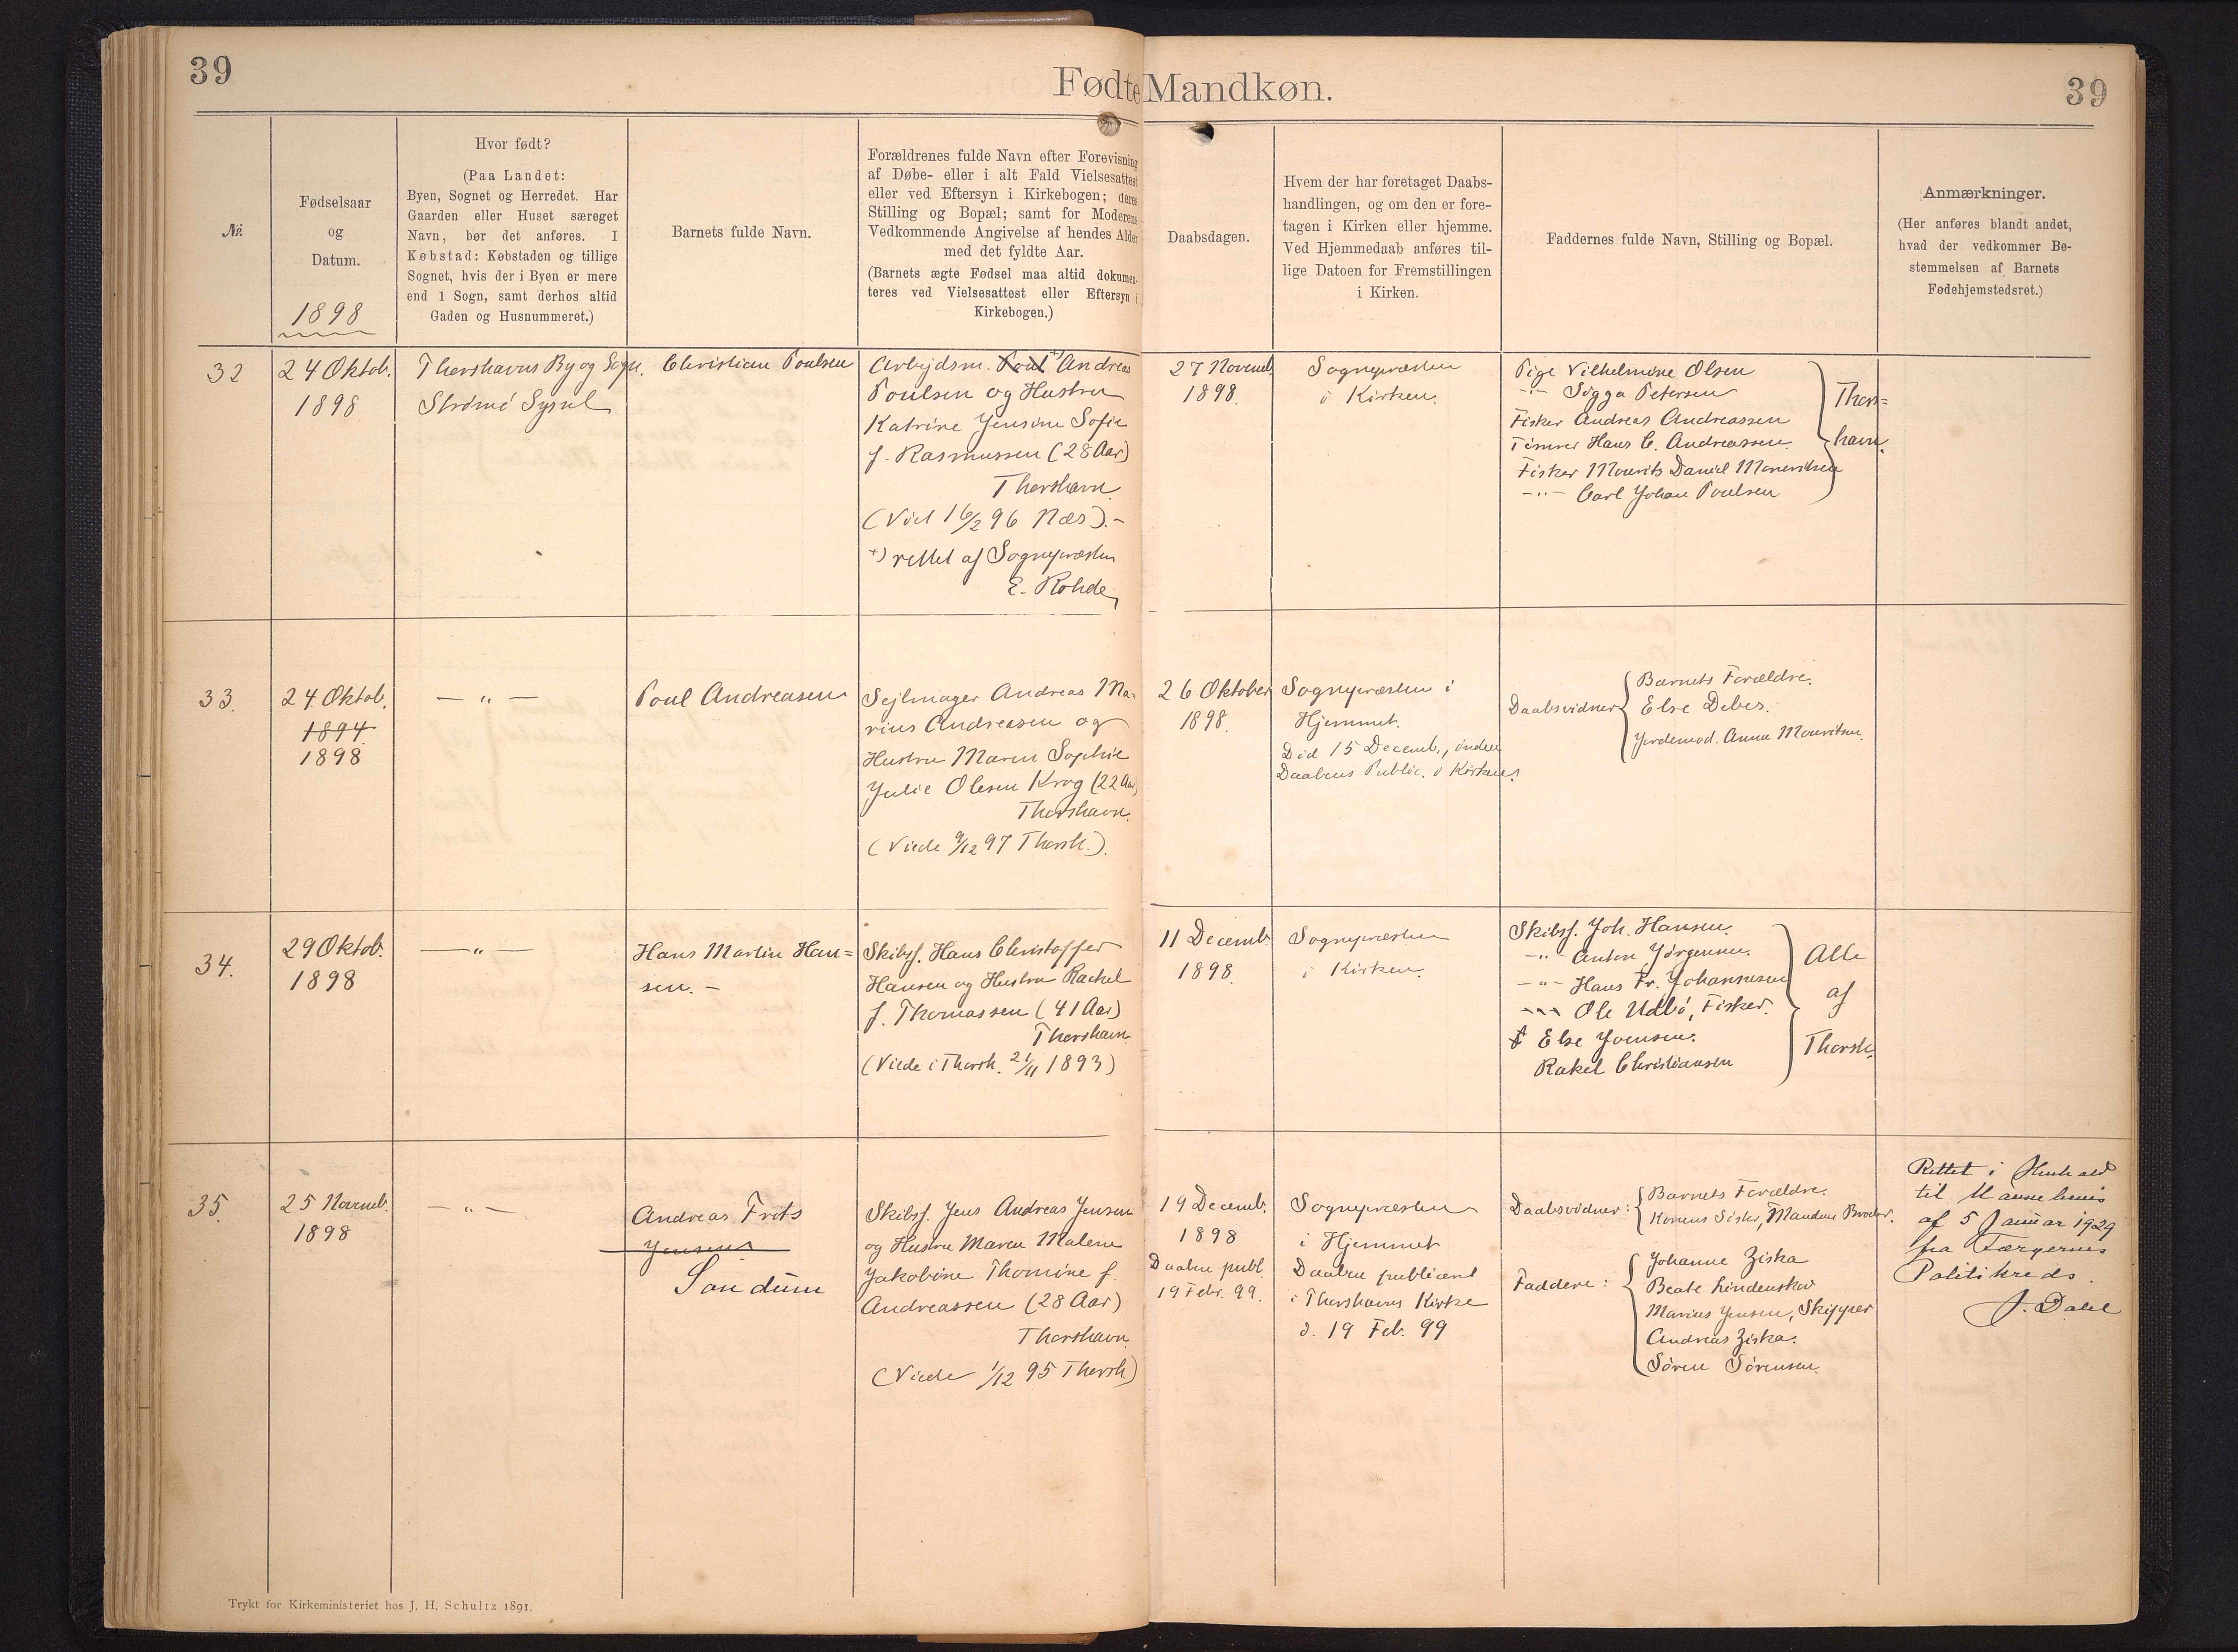 39
Fødte Mandkøn.
39
№
Fødselsaar
og
Datum.
1898
Hvor født?
(Paa Landet:
Byen, Sognet og Herredet. Har
Gaarden eller Huset særeget
Navn, bør det anføres. I
Købstad: Købstaden og tillige
Sognet, hvis der i Byen er mere
end 1 Sogn, samt derhos altid
Gaden og Husnummeret.)
Barnets fulde Navn.
Forældrenes fulde Navn efter Forevisning
af Døbe- eller i alt Fald Vielsesattest
eller ved Eftersyn i Kirkebogen; deres
Stilling og Bopæl; samt for Moderens
Vedkommende Angivelse af hendes Alder
med det fyldte Aar.
(Barnets ægte Fødsel maa altid dokumen-
teres ved Vielsesattest eller Eftersyn i
Kirkebogen.)
Daabsdagen.
Hvem der har foretaget Daabs-
handlingen, og om den er fore-
tagen i Kirken eller hjemme.
Ved Hjemmedaab anføres til-
lige Datoen for Fremstillingen
i Kirken.
Faddernes fulde Navn, Stilling og Bopæl.
Anmærkninger.
(Her anføres blandt andet,
hvad der vedkommer Be-
stemmelsen af Barnets
Fødehjemstedsret.)
32
24 Oktob.
1898
Thorshavns By og Sogn.
Strømø Syssel
Christian Poulsen
Arbejdsm. Poul +) Andreas
Poulsen og Hustru
Katrine Jensine Sofie
f. Rasmussen (28 Aar)
Thorshavn.
(Viet 16/2 96 Næs).-
+) rettet af Sognepræsten
E. Rohde
27 Novemb.
1898.
Sognepræsten
i Kirken.
Pige Vilhelmine Olsen
-"- Sigga Petersen
Fisker Andreas Andreassen
Tømrer Hans C. Andreassen.
Fisker Mourits Daniel Mouritsen
-"- Carl Johan Poulsen
Thors=
havn.
33.
24 Oktob.
1894
1898
-"-
Poul Andreasen
Sejlmager Andreas Ma-
rius Andreasen og
Hustru Maren Sophie
Julie Olesen Krog (22 Aar)
Thorshavn.
(Viede 9/12 97 Thorsh.).
26 Oktober
1898.
Sognepræsten i
Hjemmet.
Død 15 Decemb., inden
Daabens Public. i Kirken.
Daabsvidner
Barnets Forældre.
Else Debes.
Jordemod. Anna Mouritsen.
34.
29 Oktob.
1898
-"-
Hans Martin Han=
sen.-
Skibsf. Hans Christoffer
Hansen og Hustru Rachel
f. Thomassen (41 Aar)
Thorshavn
(Viede i Thorsh. 21/11 1893)
11 Decemb.
1898.
Sognepræsten
i Kirken.
Skibsf. Joh. Hansen.
-"- Anton Jørgensen.
-"- Hans Fr. Johannesen
Ole Udbø, Fisker.
Else Joensen.
Rakel Christiansen
Alle
af
Thorsh.
35.
25 Novemb.
1898
-"-
Andreas Frits
Jensen
Sandum
Skibsf. Jens Andreas Jensen
og Hustru Maren Malene
Jakobine Thomine f.
Andreassen (28 Aar)
Thorshavn.
(Viede 1/12 95 Thorsh)
19 Decemb.
1898
Daaben publ.
19 Febr. 99.
Sognepræsten
i Hjemmet
Daaben publiceret
i Thorshavns Kirke
d. 19 Feb. 99
Daabsvidner:
Barnets Forældre.
Konens Søster, Mandens Broder.
Faddere:
Johanne Ziska
Beate Lindenskov
Marius Jensen, Skipper
Andreas Ziska.
Søren Sørensen.
Rettet i Henhold
til Navnebevis
af 5 Januar 1929
fra Færøernes
Politikreds.
J. Dahl
Trykt for Kirkeministeriet hos J. H. Schultz 1891.